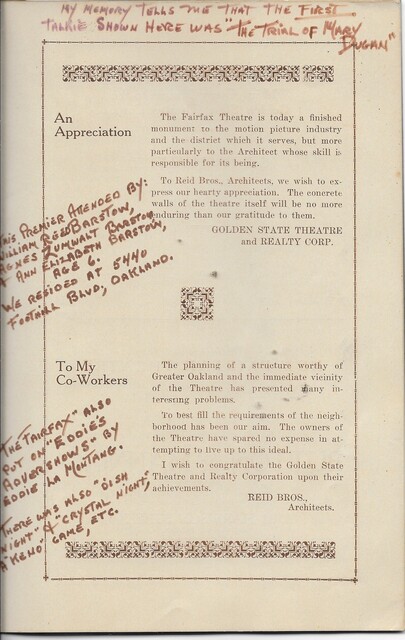 MY MEMORY TELLS ME THAT THE FIRST
TALKIE SHOWN HERE WAS "THE TRIAL OF MARY
DUGAN"
An
Appreciation
The Fairfax Theatre is today a finished
monument to the motion picture industry
and the district which it serves, but more
particularly to the Architect whose skill is
responsible for its being.
To Reid Bros., Architects, we wish to ex-
press our hearty appreciation. The concrete
walls of the theatre itself will be no more
enduring than our gratitude to them.
GOLDEN STATE THEATRE
and REALTY CORP.
THIS PREMIER ATTENDED BY:
WILLIAM REED BARSTOW,
AGNES ZUMWALT BARSTOW
& ANN ELIZABETH BARSTOW,
AGE 6.
WE RESIDED AT 5440
FOOTHILL BLVD, OAKLAND.
To My
Co-Workers
The planning of a structure worthy of
Greater Oakland and the immediate vicinity
of the Theatre has presented many in-
teresting problems.
To best fill the requirements of the neigh-
borhood has been our aim. The owners of
the Theatre have spared no expense in at-
tempting to live up to this ideal.
I wish to congratulate the Golden State
Theatre and Realty Corporation upon their
achievements.
REID BROS.,
Architects.
"THE FAIRFAX" ALSO
PUT ON "EDDIE'S
SHOWS" BY
EDDIE LA MONTANG.
THERE WAS ALSO "DISH
NIGHT" & "CRYSTAL NIGHT",
A "KENO" GAME, ETC.